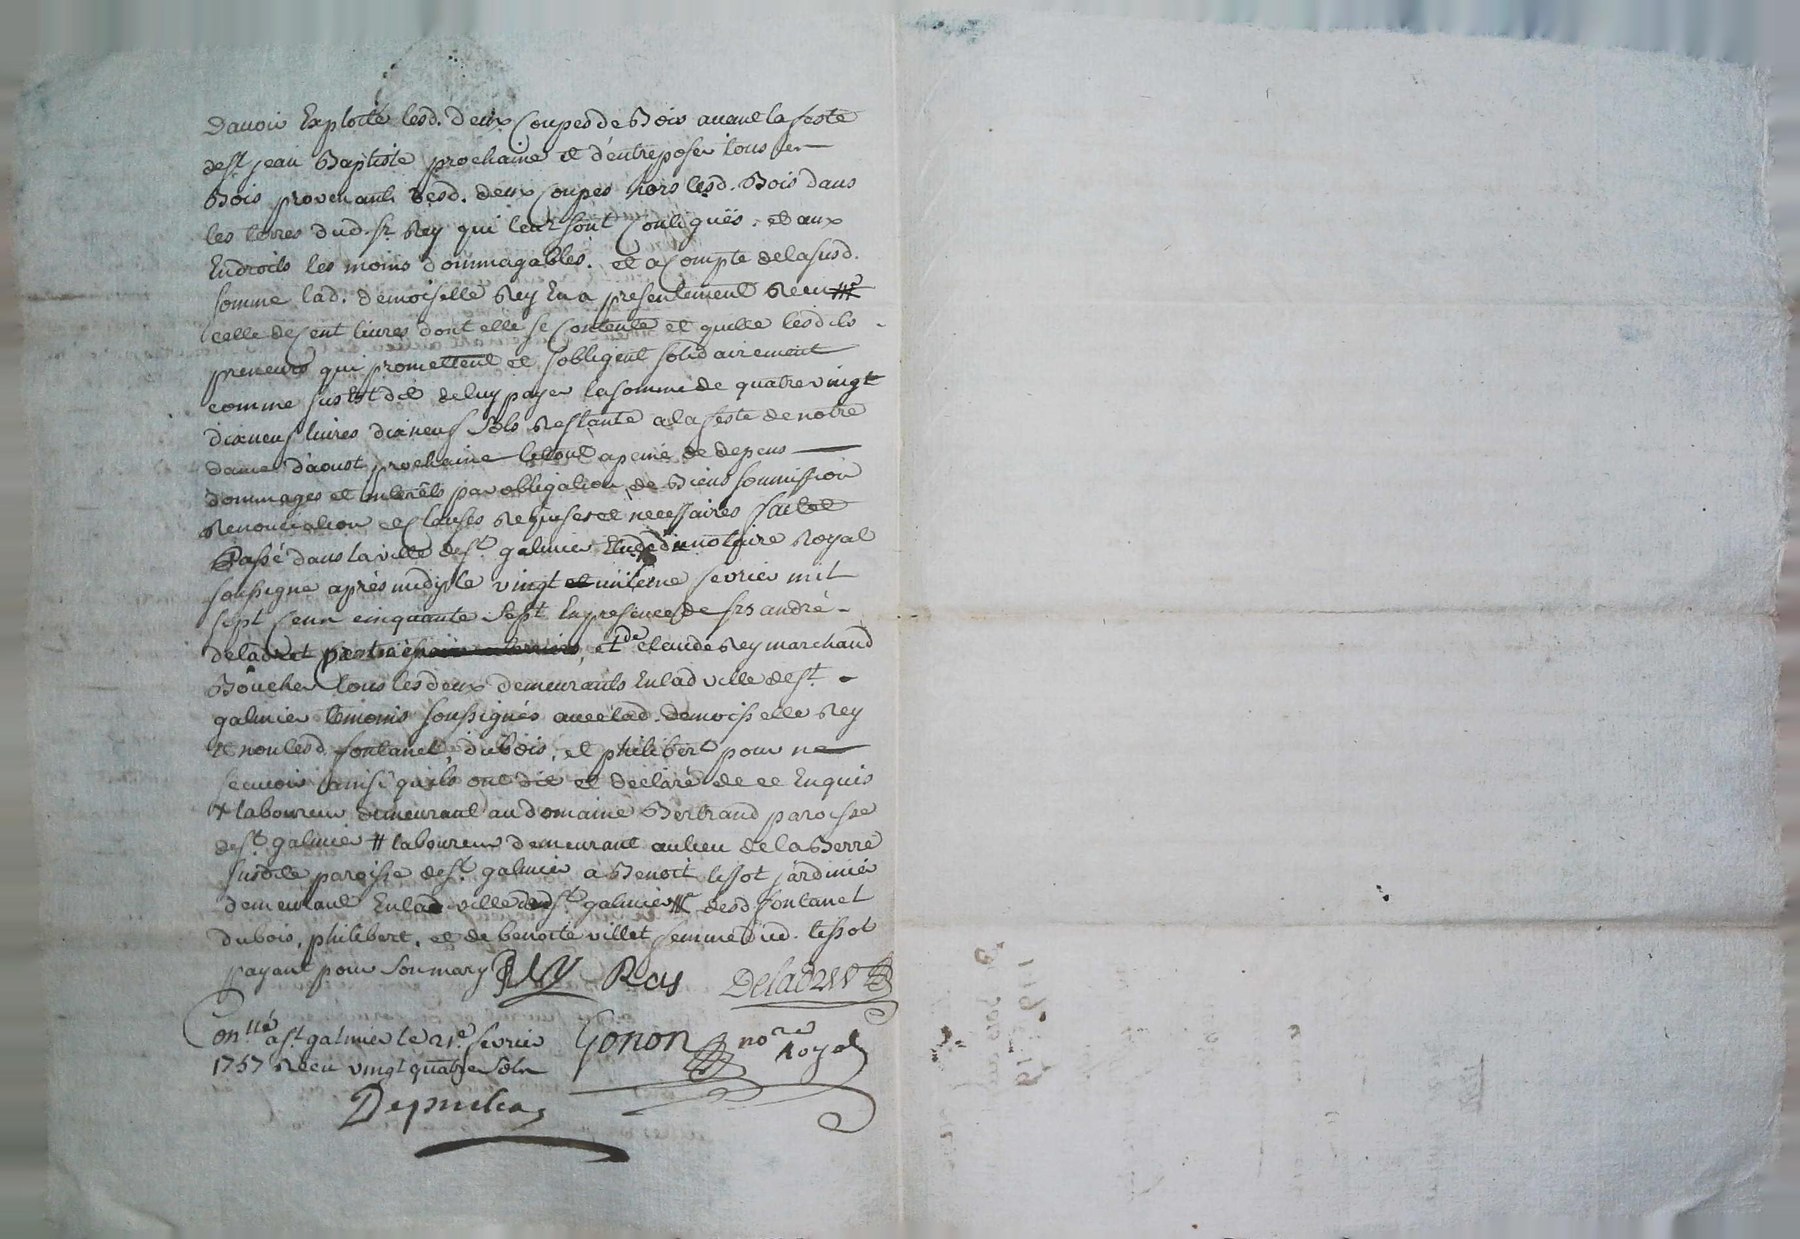 Davoir Exploité lesd. deux Coupes de Bois avant la feste
de st jean Baptiste prochaine et d'entreposer tous les
Bois provenants desd. deux Coupes hors lesd. Bois dans
les terres dud. sr Rey qui leur sont Contigues, et aux
Endroits les moins dommagables. et a Compte de la susd.
somme lad. demoiselle Rey En a presentement Receu #
celle de Cent livres dont elle se Contente et quitte lesdits
preneurs qui promettent et sobligent solidairement
comme sus Est dit de luy payer la somme de quatre vingt
dixneuf livres dixneuf sols Restante a la feste de notre
dame d'aoust prochaine le tout a peine de depens
dommages et interêts par obligation de Biens soumission
Renonciation et Clauses Requises et necessaires fait et
Passé dans la ville de st galmier Etude du notaire Royal
soussigné après midy le vingt et unieme fevrier mil
sept Cent cinquante sept En presence de srs andré
deladret et de claude Rey marchand
Boucher tous les deux demeurants En lad ville de st
galmier temoins soussignés avec lad. demoiselle Rey
et non lesd. fontanet, dubois, et philibert pour ne
scavoir ainsi quils ont dit et declaré de ce Enquis
x laboureur demeurant au domaine Bertrand paroisse
de st galmier # laboureur demeurant au lieu de la Berre
susdte paroisse de st galmier a Benoit tissot jardinier
demeurant En lad ville de st galmier # desd fontanet
dubois, philibert, et de benoite villet femme dud. tissot
payant pour son mary Rey Rey Deladret
Conllé a st galmier le 21e fevrier Gonon nore Royal
1757 Receu vingt quatre sols